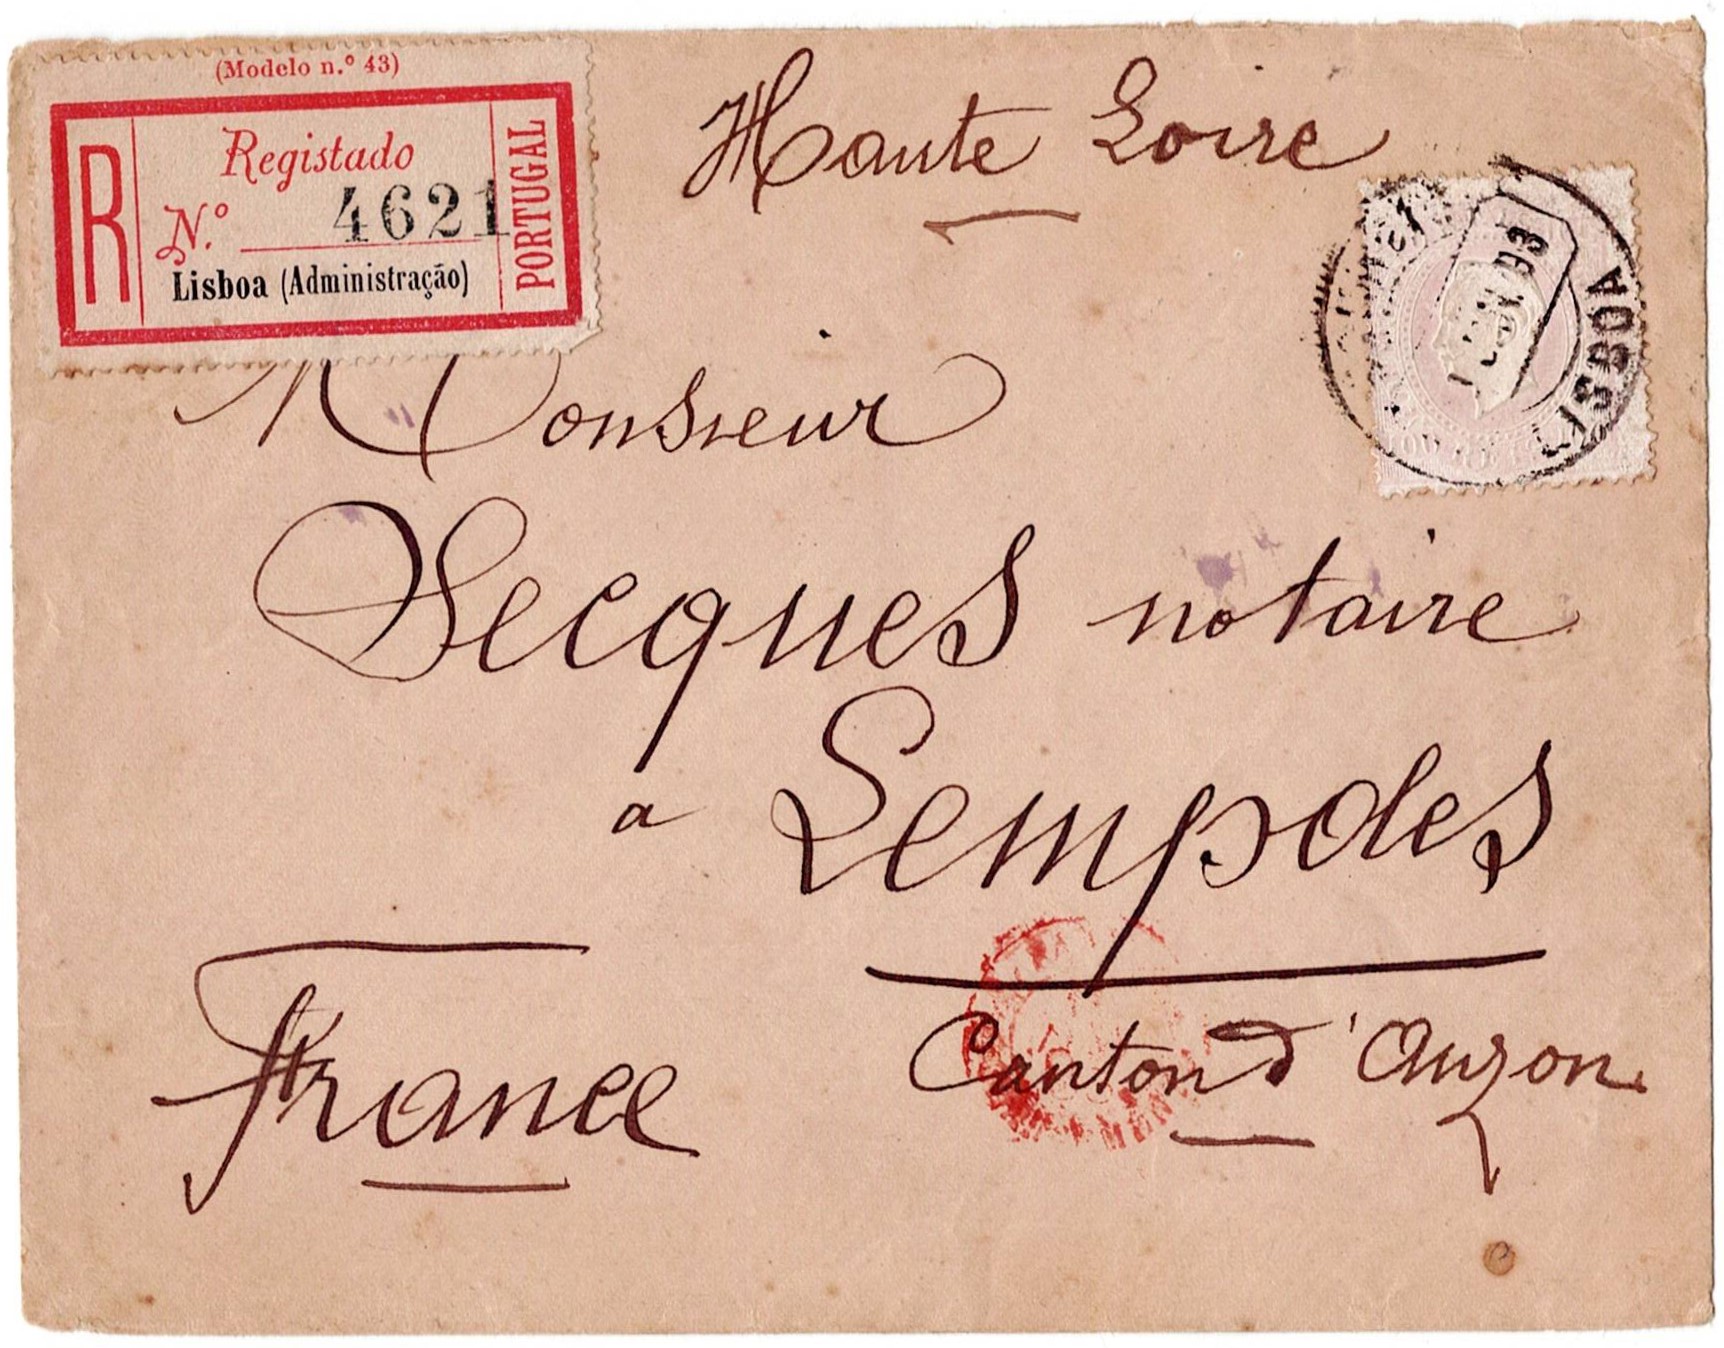 (Modelo n.º 43)
R
Registado
N.º 4621
Lisboa (Administração)
PORTUGAL
Haute Loire
LISBOA
93
Monsieur
Secques notaire
a Lempdes
Canton d'Auzon
France